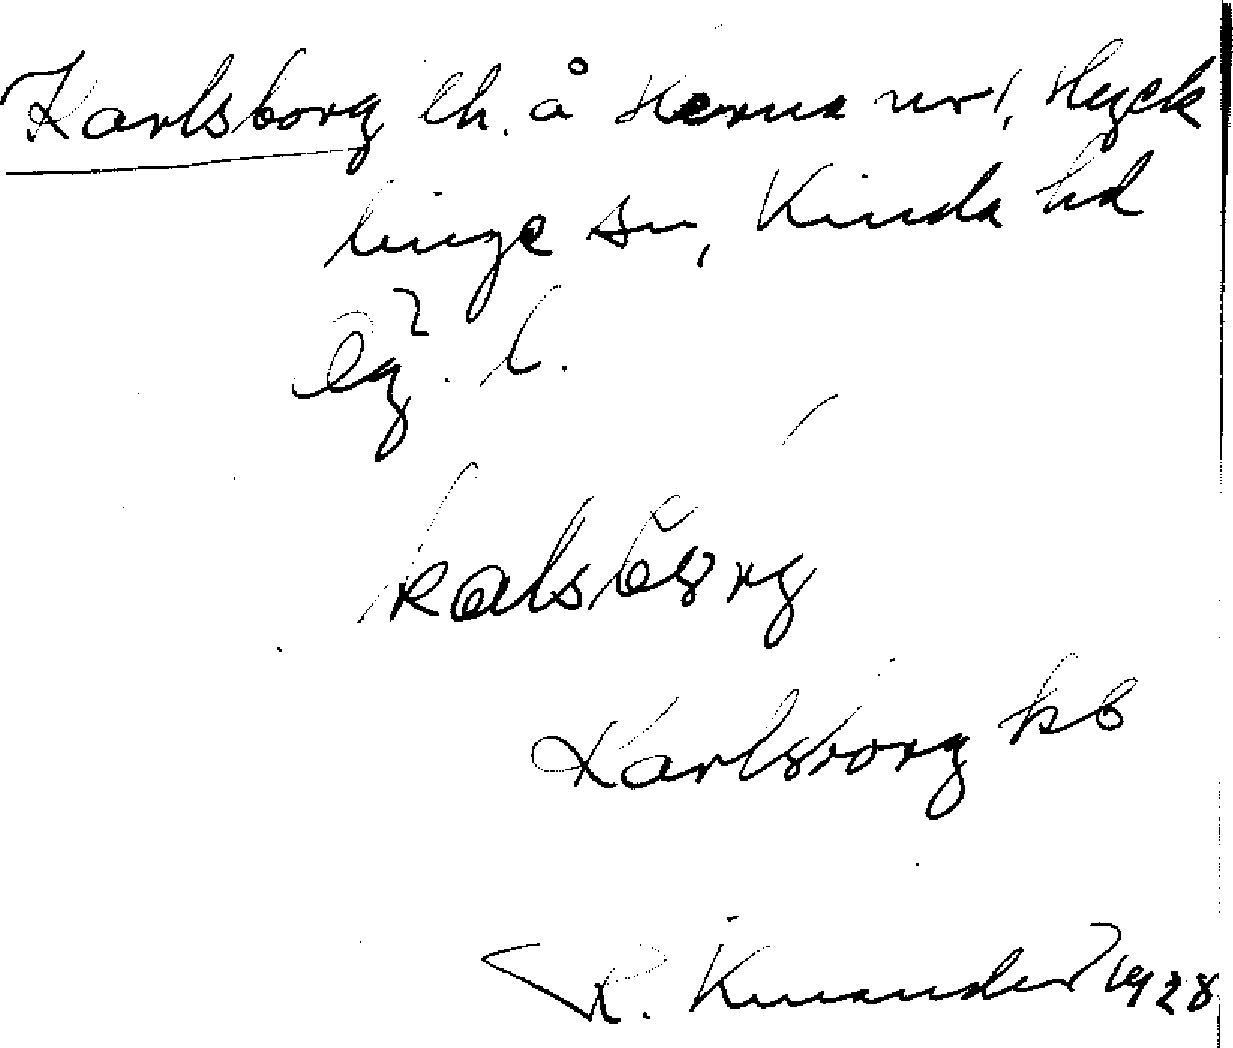 Karlsborg lh. å Herna nr 1, Hyck
linge sn, Kinda hd
Ög. l.
kalsbǒrg
Karlsborg kb
R. Kinander 1928